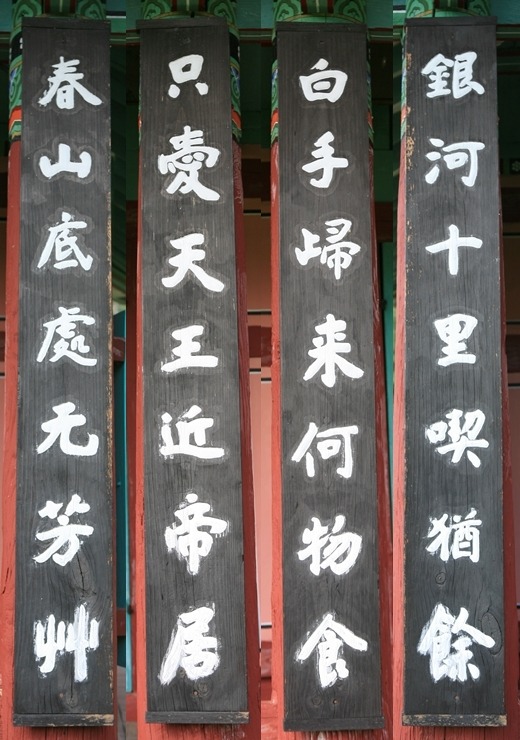 春山底處元芳艸
只愛天王近帝居
白手歸来何物食
銀河十里喫猶餘